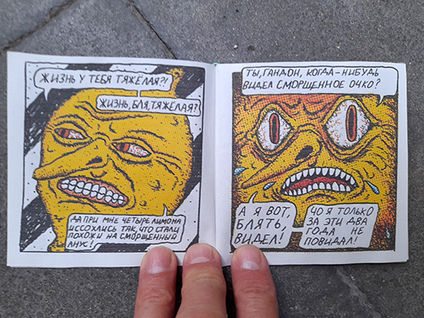 ЖИЗНЬ У ТЕБЯ ТЯЖЕЛАЯ?!
ЖИЗНЬ, БЛЯ, ТЯЖЕЛАЯ?
ДА ПРИ МНЕ ЧЕТЫРЕ ЛИМОНА
ИССОХЛИСЬ ТАК, ЧТО СТАЛИ
ПОХОЖИ НА СМОРЩЕННЫЙ
АНУС!
ТЫ, ГАНДОН, КОГДА-НИБУДЬ
ВИДЕЛ СМОРЩЕННОЕ ОЧКО?
А Я ВОТ,
БЛЯТЬ,
ВИДЕЛ!
ЧО Я ТОЛЬКО
ЗА ЭТИ ДВА
ГОДА НЕ
ПОВИДАЛ!